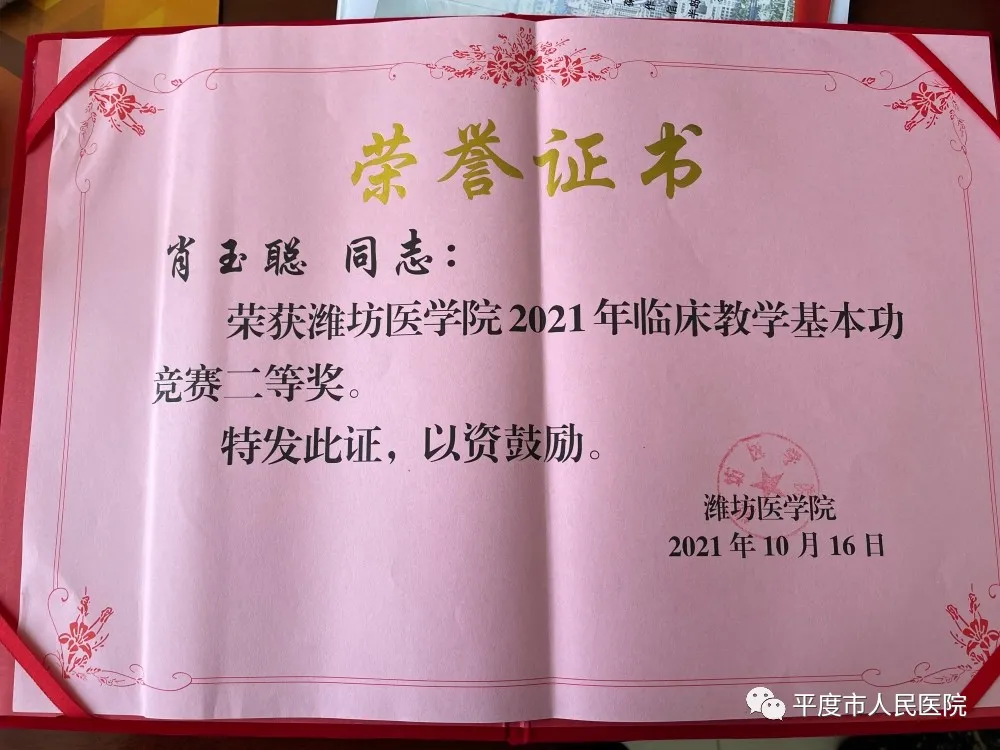 荣誉证书
肖玉聪 同志：
荣获潍坊医学院2021年临床教学基本功
竞赛二等奖。
特发此证，以资鼓励。
潍坊医学院
2021年10月16日
平度市人民医院